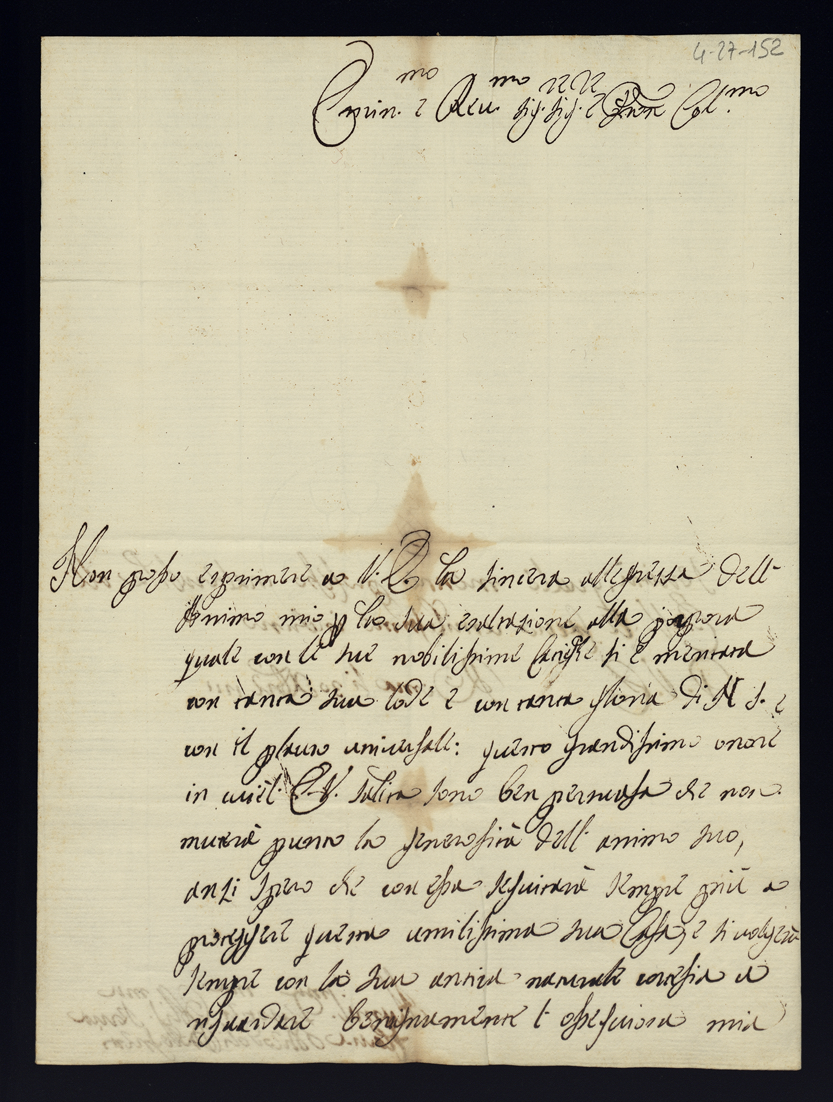 4-27-152
Emin.mo e Reu.mo Sig.re Sig.re e Pñne Col.mo
Non posso esprimere a V. E. la sincera allegrezza dell'
Animo mio p la sua esaltazione alla porpora
quale con le sue nobilissime Cariche si è meritata
con tanta sua lode e con tanta gloria di N. S. e
con il plauso universale: questo grandissimo onore
in cui l' E. V. salita sono ben persuasa che non
muterà punto la generosità dell' animo suo,
anzi spero che con essa seguitarà sempre più a
proteggere questa umilissima sua Casa, e si volgerà
sempre con la sua antica naturale cortesia a
riguardare benignamente l' ossequiosa mia